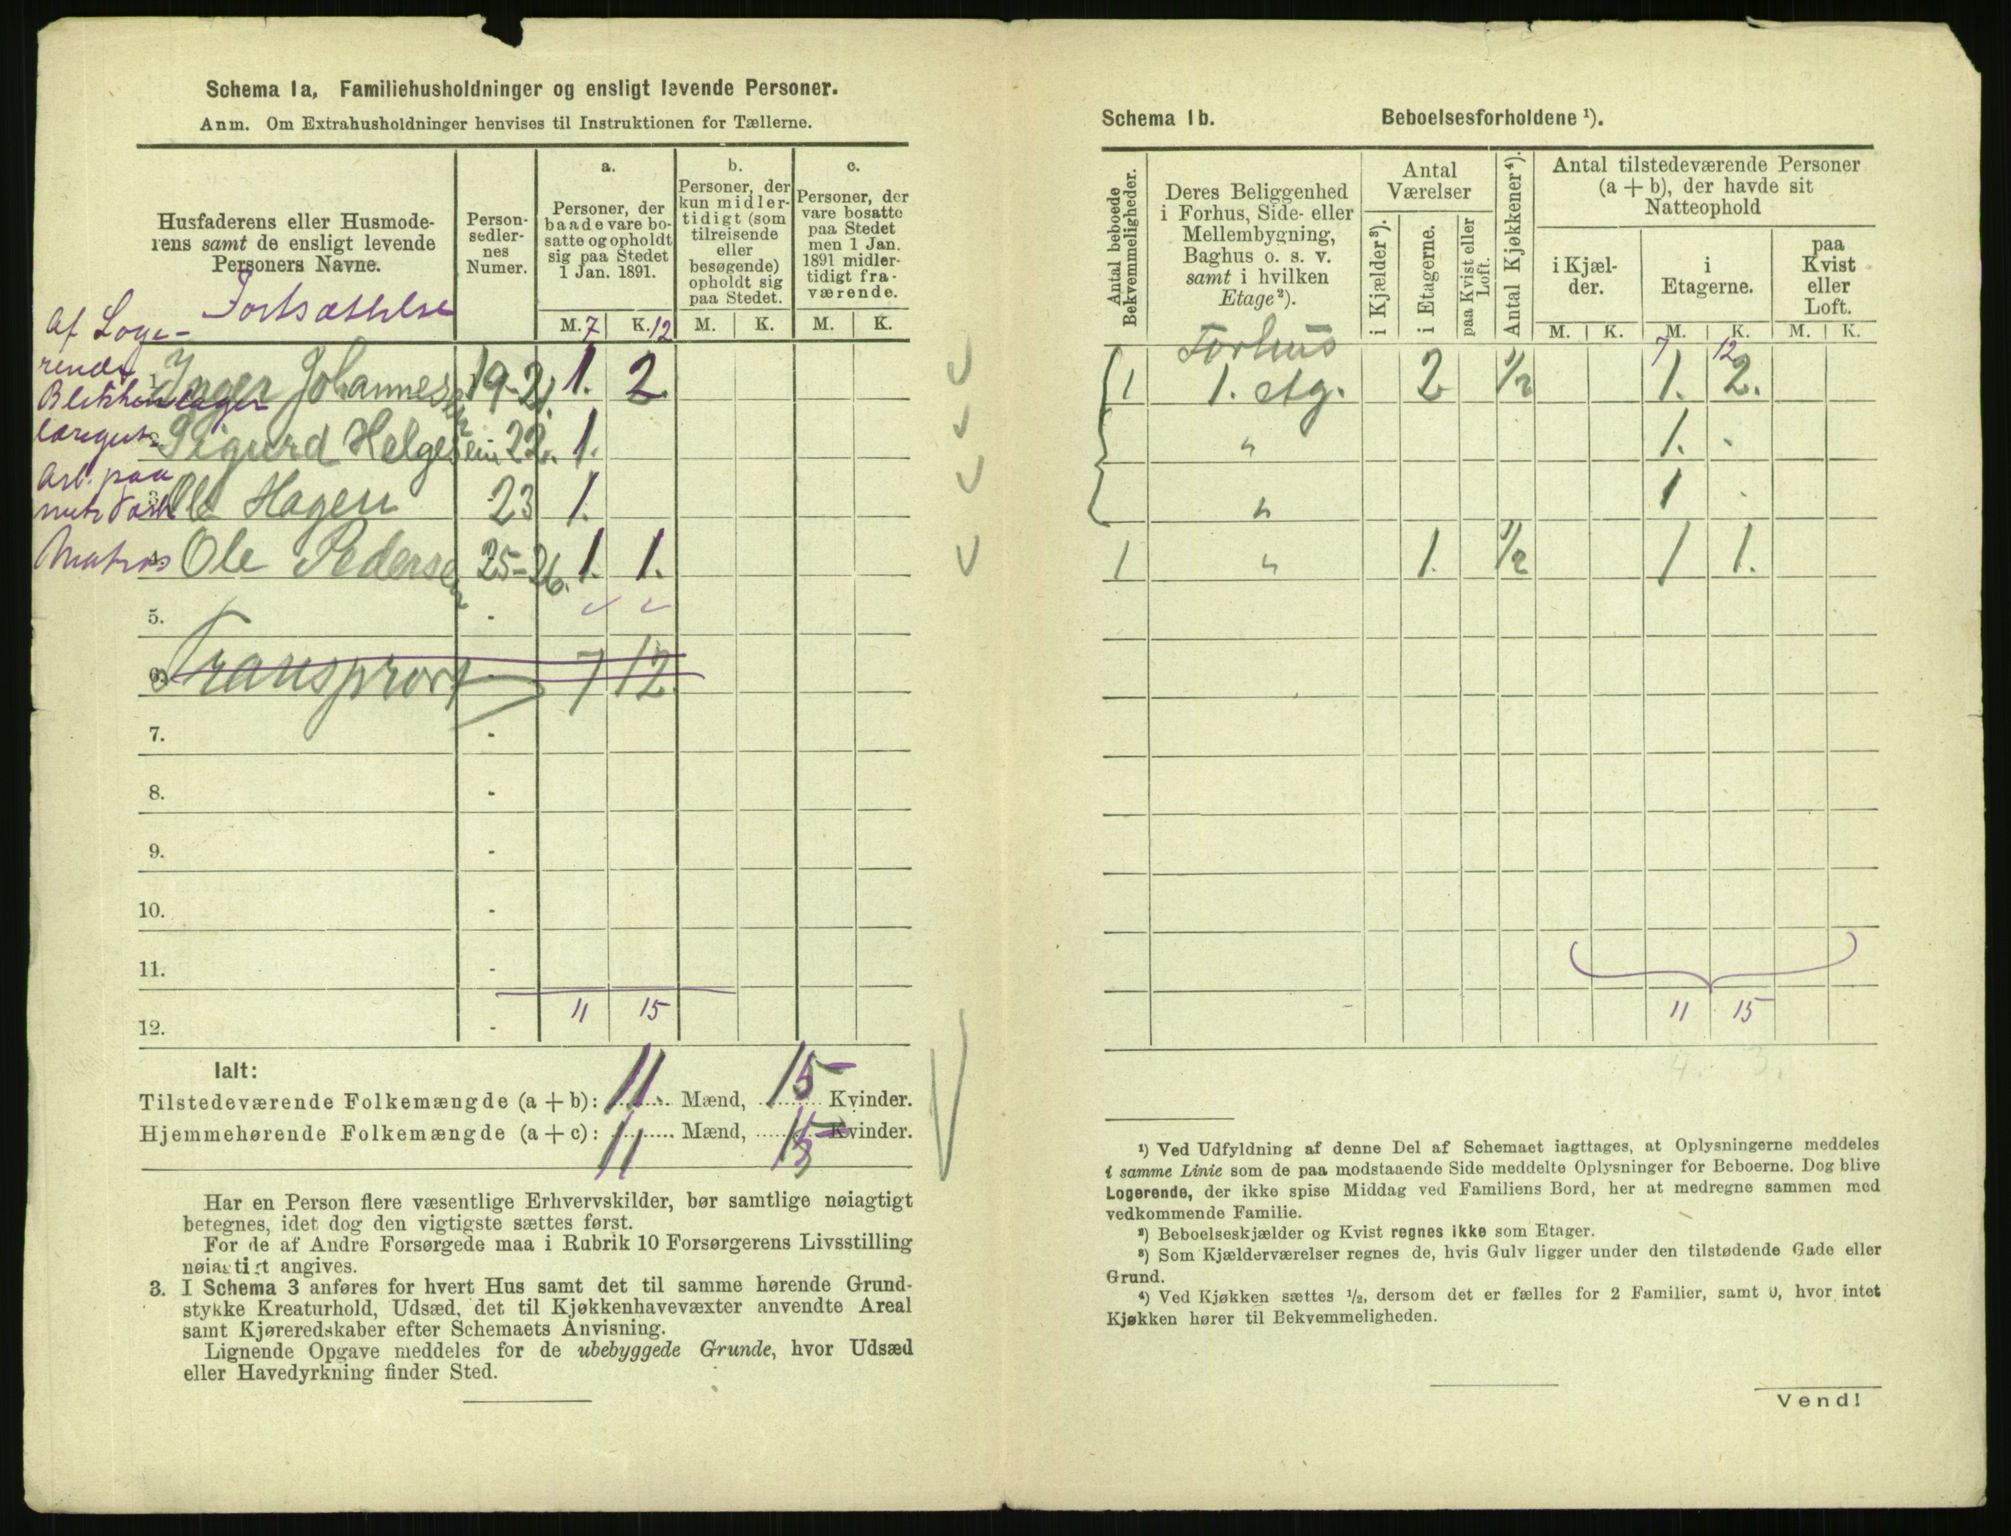 Schema 1a, Familiehusholdninger og ensligt levende Personer.
Anm. Om Extrahusholdninger henvises til Instruktionen for Tællerne.
Husfaderens eller Husmode-
rens samt de ensligt levende
Personers Navne.
Person-
sedler-
nes
Numer.
a.
Personer, der
baade vare bo-
satte og opholdt
sig paa Stedet
1 Jan. 1891.
b.
Personer, der
kun midler-
tidigt (som
tilreisende
eller
besøgende)
opholdt sig
paa Stedet.
c.
Personer, der
vare bosatte
paa Stedet
men 1 Jan.
1891 midler-
tidigt fra-
værende.
Fortsættelse
M. 7 K. 12 M. K. M. K.
Af Loge-
rende
1. Inger Johannesen 19-21. 1. 2
2. Sigurd Helgesen 22. 1.
Arb. paa
3. Ole Hagen 23 1.
Matros
4. Ole Pedersen 25-26. 1. 1.
5. -
6. Transport - 7 12
7. -
8. -
9. -
10. -
11. -
12. - 11 15
Ialt:
Tilstedeværende Folkemængde (a + b): 11 Mænd, 15 Kvinder.
Hjemmehørende Folkemængde (a + c): 11 Mænd, 15 Kvinder.
Har en Person flere væsentlige Erhvervskilder, bør samtlige nøiagtigt
betegnes, idet dog den vigtigste sættes først.
For de af Andre Forsørgede maa i Rubrik 10 Forsørgerens Livsstilling
nøiagtigt angives.
3. I Schema 3 anføres for hvert Hus samt det til samme hørende Grund-
stykke Kreaturhold, Udsæd, det til Kjøkkenhavevæxter anvendte Areal
samt Kjøreredskaber efter Schemaets Anvisning.
Lignende Opgave meddeles for de ubebyggede Grunde, hvor Udsæd
eller Havedyrkning finder Sted.
Schema 1b. Beboelsesforholdene ¹).
Antal beboede
Bekvemmeligheder.
Deres Beliggenhed
i Forhus, Side- eller
Mellembygning,
Baghus o. s. v.
samt i hvilken
Etage²).
Antal
Værelser
i Kjælder³).
i Etagerne.
paa Kvist eller
Loft.
Antal Kjøkkener⁴).
Antal tilstedeværende Personer
(a + b), der havde sit
Natteophold
i Kjæl-
der.
i
Etagerne.
paa
Kvist
eller
Loft.
M. K. M. K. M. K.
7 12
Forhus
1 1. Etg. 2 1/2 1. 2.
" 1. -
" 1 -
1 " 1. 1/2 1 1.
11 15
4. 3.
¹) Ved Udfyldning af denne Del af Schemaet iagttages, at Oplysningerne meddeles
i samme Linie som de paa modstaaende Side meddelte Oplysninger for Beboerne. Dog blive
Logerende, der ikke spise Middag ved Familiens Bord, her at medregne sammen med
vedkommende Familie.
²) Beboelseskjælder og Kvist regnes ikke som Etager.
³) Som Kjælderværelser regnes de, hvis Gulv ligger under den tilstødende Gade eller
Grund.
⁴) Ved Kjøkken sættes ½, dersom det er fælles for 2 Familier, samt 0, hvor intet
Kjøkken hører til Bekvemmeligheden.
Vend!